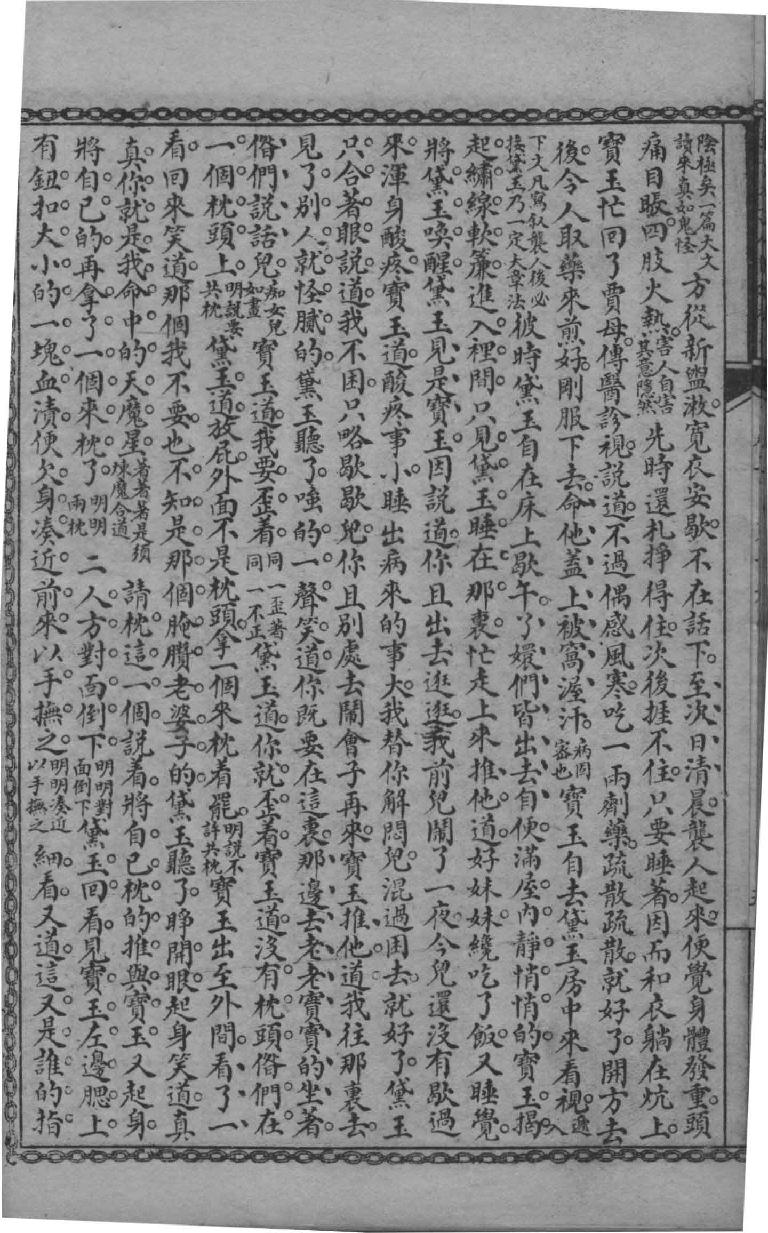 陰極矣一篇大文讀來真如鬼怪方從新盥漱寬衣安歇不在話下至次日清晨襲人起來便覺身體發重頭
痛目賬四肢火熱害人自害其意隱然先時還扎掙得住次後捱不住只要睡著因而和衣躺在炕上
寶玉忙回了賈母傳醫診視說道不過偶感風寒吃一兩劑藥疏散疏散就好了開方去
後令人取藥來煎好剛服下去命他蓋上被窩渥汗病因寶玉自去黛玉房中來看視
下文凡寫叙襲人後必接黛玉乃一定大章法彼時黛玉自在床上歇午了嬛們皆出去自便滿屋內靜悄悄的寶玉揭
起繡線軟簾進入裡間只見黛玉睡在那裏忙走上來推他道好妹妹纔吃了飯又睡覺
將黛玉喚醒黛玉見是寶玉因說道你且出去逛逛我前兒鬧了一夜今兒還沒有歇過
來渾身酸疼寶玉道酸疼事小睡出病來的事大我替你解悶兒混過困去就好了黛玉
只合著眼說道我不困只略歇歇兒你且別處去鬧會子再來寶玉推他道我往那裏去
見了別人就怪膩的黛玉聽了嗤的一聲笑道你既要在這裏那邊去老老實實的坐著
偺們說話兒痴女兒如畫寶玉道我要歪着同一歪著同一不正黛玉道你就歪着寶玉道沒有枕頭偺們在
一個枕頭上明說要共枕黛玉道放屁外面不是枕頭拿一個來枕着罷明說不許共枕寶玉出至外間看了一
看回來笑道那個我不要也不知是那個腌臢老婆子的黛玉聽了睜開眼起身笑道真
真你就是我命中的天魔星著著著是須煉魔合道請枕這一個說着將自己枕的推與寶玉又起身
將自己的再拿了一個來枕了明明兩枕二人方對面倒下明明對面倒下黛玉回看見寶玉左邊腮上
有鈕扣大小的一塊血漬便欠身湊近前來以手撫之明明湊近以手撫之細看又道這又是誰的指